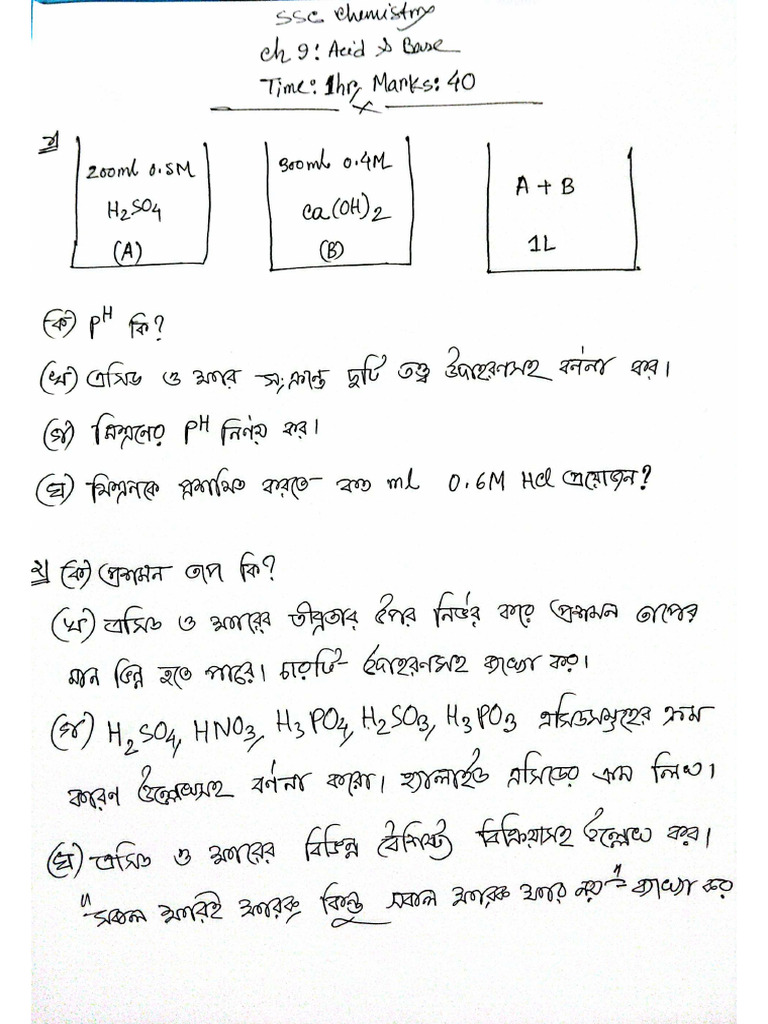 SSC Chemistry
Ch 9: Acid & Base
Time: 1hr, Marks: 40
১)
200ml 0.5M
H2SO4
(A)
300ml 0.4M
Ca(OH)2
(B)
A + B
1L
(ক) pH কি?
(খ) এসিড ও ক্ষার সংক্রান্ত দুটি তত্ত্ব উদাহরণসহ বর্ণনা কর।
(গ) মিশ্রনের pH নির্ণয় কর।
(ঘ) মিশ্রনকে প্রশমিত করতে কত ml 0.6M HCl প্রয়োজন?
২) (ক) প্রশমন তাপ কি?
(খ) এসিড ও ক্ষারের তীব্রতার উপর নির্ভর করে প্রশমন তাপের
মান ভিন্ন হতে পারে। চারটি উদাহরণসহ ব্যাখ্যা কর।
(গ) H2SO4, HNO3, H3PO4, H2SO3, H3PO3 এসিডসমূহের ক্রম
কারণ উল্লেখসহ বর্ণনা করো। হ্যালাইড এসিডের ক্রম লিখ।
(ঘ) এসিড ও ক্ষারের বিভিন্ন বৈশিষ্ট্য বিক্রিয়াসহ উল্লেখ কর।
"সকল ক্ষারই ক্ষারক, কিন্তু সকল ক্ষারক ক্ষার নয়" - ব্যাখ্যা কর